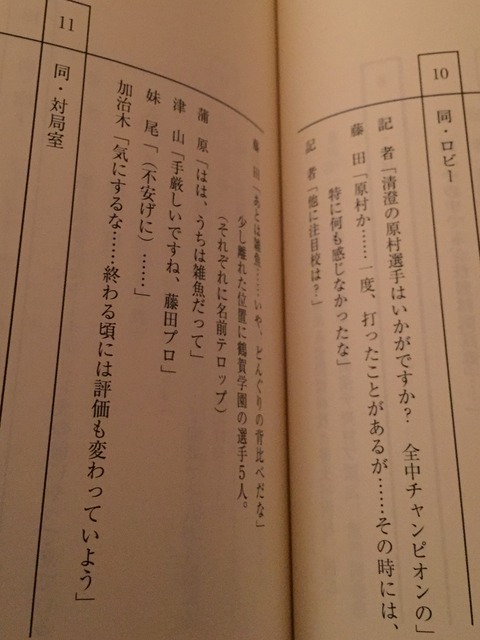 10
同・ロビー
記　者「清澄の原村選手はいかがですか？　全中チャンピオンの」
藤　田「原村か……一度、打ったことがあるが……その時には、
特に何も感じなかったな」
記　者「他に注目校は？」
藤　田「あとは雑魚……いや、どんぐりの背比べだな」
少し離れた位置に鶴賀学園の選手５人。
（それぞれに名前テロップ）
蒲　原「はは、うちは雑魚だって」
津　山「手厳しいですね、藤田プロ」
妹　尾「（不安げに）……」
加治木「気にするな……終わる頃には評価も変わっていよう」
11
同・対局室